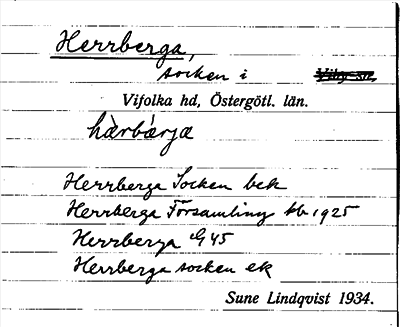 Herrberga,
socken i Viby sn,
Vifolka hd, Östergötl. län.
hàrbárja
Herrberga Socken bek
Herrberga Församling tb 1925
Herrberga G 45
Herrberga socken ek
Sune Lindqvist 1934.